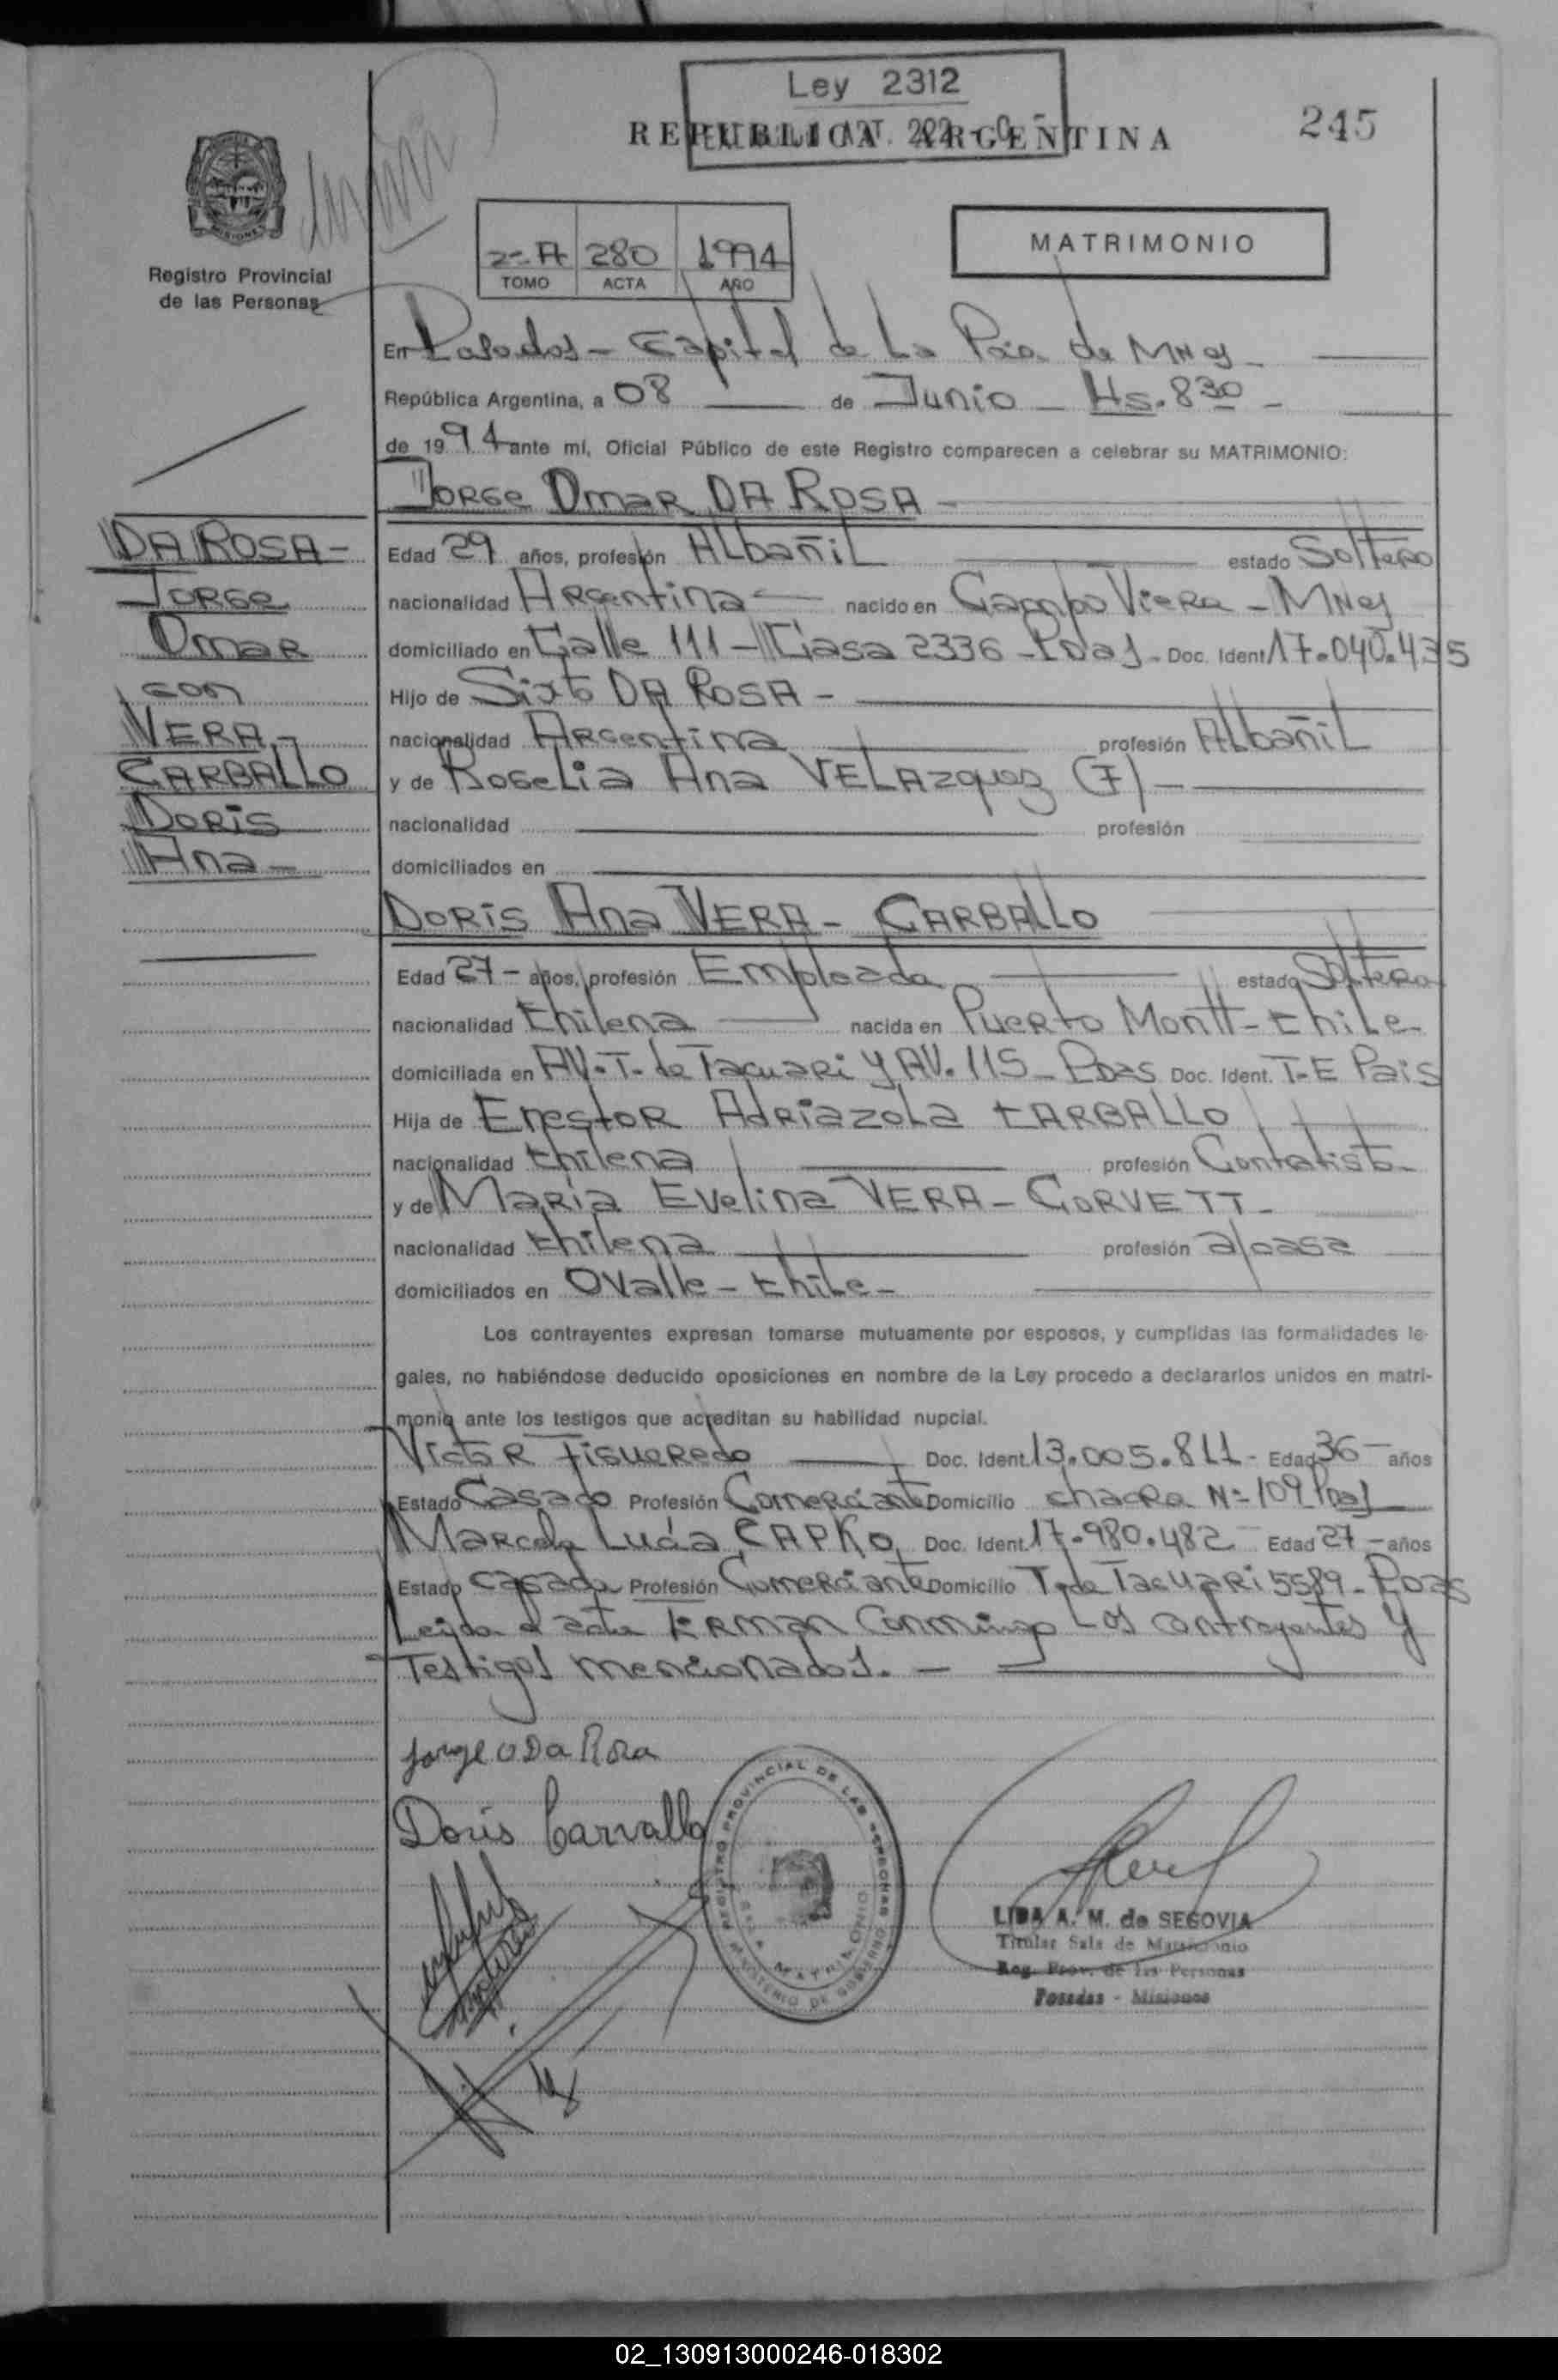 Ley 2312
REPUBLICA ARGENTINA
245
MISIONES
Registro Provincial
de las Personas
2-A 280 1994
TOMO ACTA AÑO
MATRIMONIO
En Posadas - Capital de La Pcia de Mnes
República Argentina, a 08 de Junio - Hs. 8 30 -
de 1994 ante mí, Oficial Público de este Registro comparecen a celebrar su MATRIMONIO:
Jorge Omar DA ROSA -
Edad 29 años, profesión Albañil estado Soltero
nacionalidad Argentina nacido en Campo Viera - Mnes
domiciliado en Calle 111 - Casa 2336 - Pdas - Doc. Ident 17.040.435
Hijo de Sixto DA ROSA -
nacionalidad Argentina profesión Albañil
y de Rogelia Ana VELAZquez (F) -
nacionalidad profesión
domiciliados en
DA ROSA -
Jorge
Omar
con
VERA -
CARBALLO
Doris
Ana -
Doris Ana VERA - CARBALLO
Edad 27 - años, profesión Empleada estado Soltera
nacionalidad Chilena nacida en Puerto Montt - Chile -
domiciliada en AV. T. de Tacuari y AV. 115 - Pdas Doc. Ident. T-E Pais
Hija de Enestor Adriazola CARBALLO
nacionalidad Chilena profesión Contratista
y de Maria Evelina VERA - CORVETT -
nacionalidad Chilena profesión a/casa
domiciliados en Ovalle - Chile -
Los contrayentes expresan tomarse mutuamente por esposos, y cumplidas las formalidades le-
gales, no habiéndose deducido oposiciones en nombre de la Ley procedo a declararlos unidos en matri-
monio ante los testigos que acreditan su habilidad nupcial.
Victor Figueredo Doc. Ident. 13.005.811 - Edad 36 - años
Estado Casado Profesión Comerciante Domicilio chacra Nº 109 Pdas
Marcela Lucia CAPKO Doc. Ident. 17.980.482 - Edad 27 - años
Estado casada Profesión Comerciante Domicilio T. de Tacuari 5589 - Pdas
Leida el acta Firman Conmigo Los contrayentes y
Testigos mencionados. -
Jorge O Da Rosa
Doris Carvallo
REGISTRO PROVINCIAL DE LAS PERSONAS
SALA MATRIMONIO
MINISTERIO DE GOBIERNO
LIDA A. M. de SEGOVIA
Titular Sala de Matrimonio
Reg. Prov. de las Personas
Posadas - Misiones
02_130913000246-018302